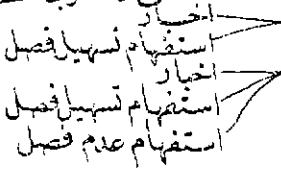 اخبار
استفهام تسهيل فصل
اخبار
استفهام تسهيل فصل
استفهام عدم فصل